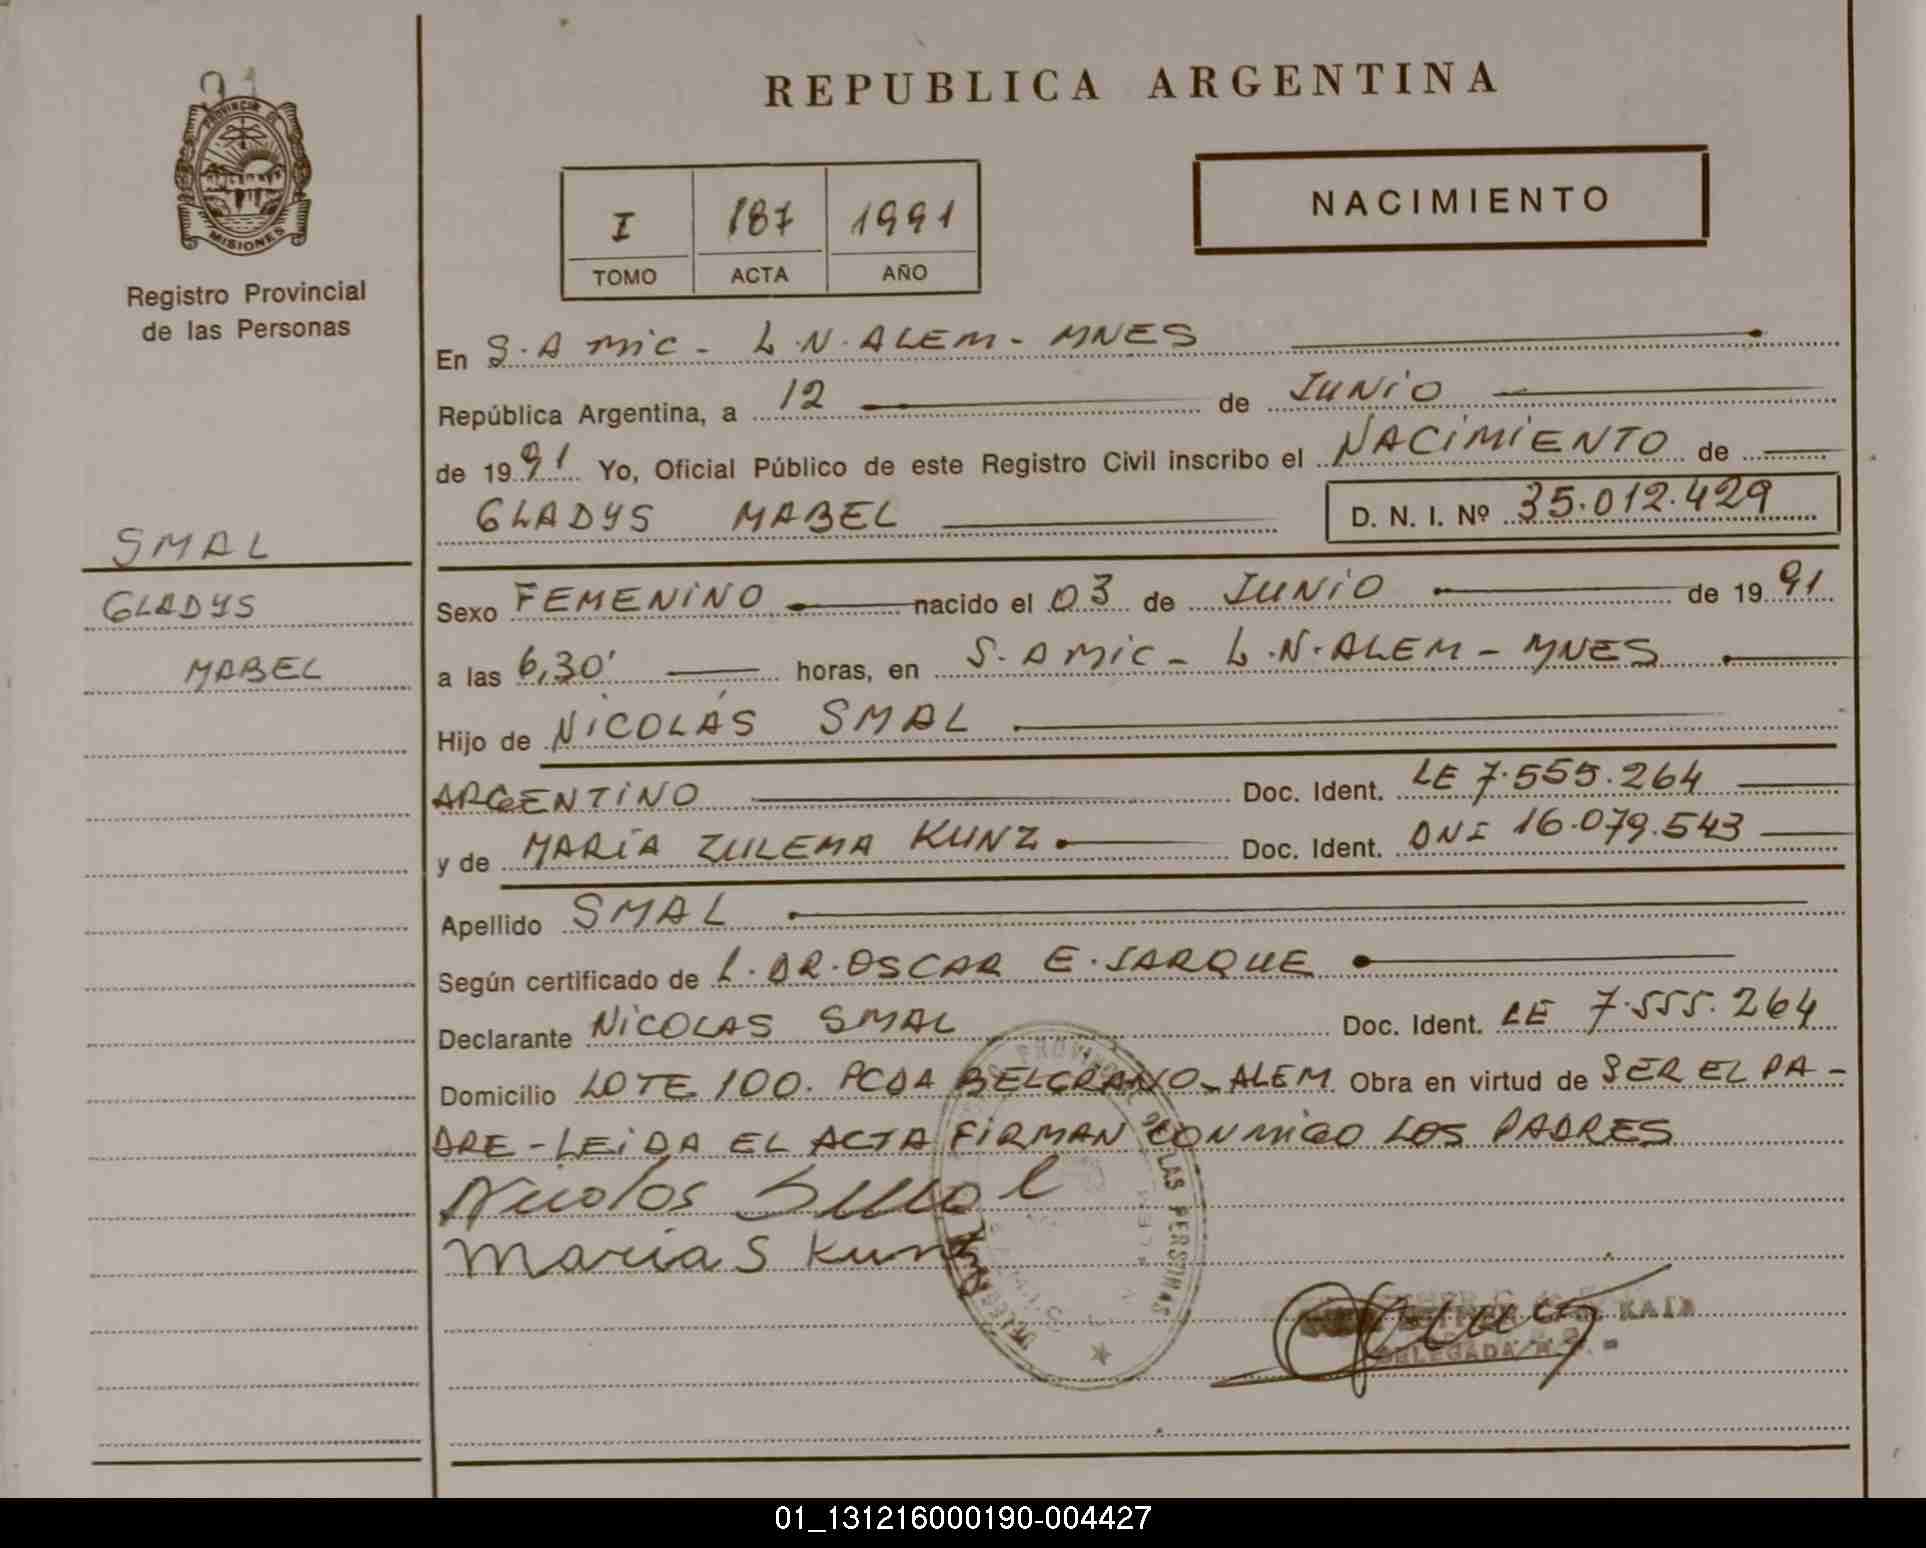 REPUBLICA ARGENTINA
PROVINCIA DE
MISIONES
Registro Provincial
de las Personas
I 187 1991
TOMO ACTA AÑO
NACIMIENTO
En S. A MIC - L.N. ALEM - MNES
República Argentina, a 12 de JUNIO
de 1991 Yo, Oficial Público de este Registro Civil inscribo el NACIMIENTO de
GLADYS MABEL D. N. I. Nº 35.012.429
SMAL
GLADYS
MABEL
Sexo FEMENINO nacido el 03 de JUNIO de 1991
a las 6,30' horas, en S. A MIC - L.N. ALEM - MNES
Hijo de NICOLÁS SMAL
ARGENTINO Doc. Ident. LE 7.555.264
y de MARÍA ZULEMA KUNZ Doc. Ident. DNI 16.079.543
Apellido SMAL
Según certificado de L. DR. OSCAR E. JARQUE
Declarante NICOLAS SMAL Doc. Ident. LE 7.555.264
Domicilio LOTE 100. PCDA BELGRANO - ALEM Obra en virtud de SER EL PA-
DRE - LEIDA EL ACTA FIRMAN CONMIGO LOS PADRES
Nicolas Smal
Maria S Kunz
PROVINCIAL DE LAS PERSONAS
DELEGADA
01_131216000190-004427